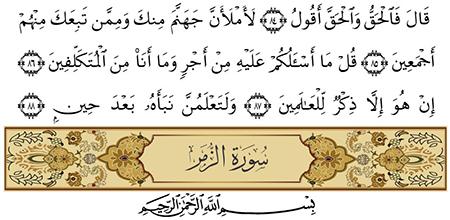 قَالَ فَالْحَقُّ وَالْحَقَّ أَقُولُ ﴿٨٤﴾ لَأَمْلَأَنَّ جَهَنَّمَ مِنكَ وَمِمَّن تَبِعَكَ مِنْهُمْ
أَجْمَعِينَ ﴿٨٥﴾ قُلْ مَا أَسْأَلُكُمْ عَلَيْهِ مِنْ أَجْرٍ وَمَا أَنَا مِنَ الْمُتَكَلِّفِينَ ﴿٨٦﴾
إِنْ هُوَ إِلَّا ذِكْرٌ لِّلْعَالَمِينَ ﴿٨٧﴾ وَلَتَعْلَمُنَّ نَبَأَهُ بَعْدَ حِينٍ ﴿٨٨﴾
سُورَةُ الزُّمَرِ
بِسْمِ اللَّهِ الرَّحْمَٰنِ الرَّحِيمِ